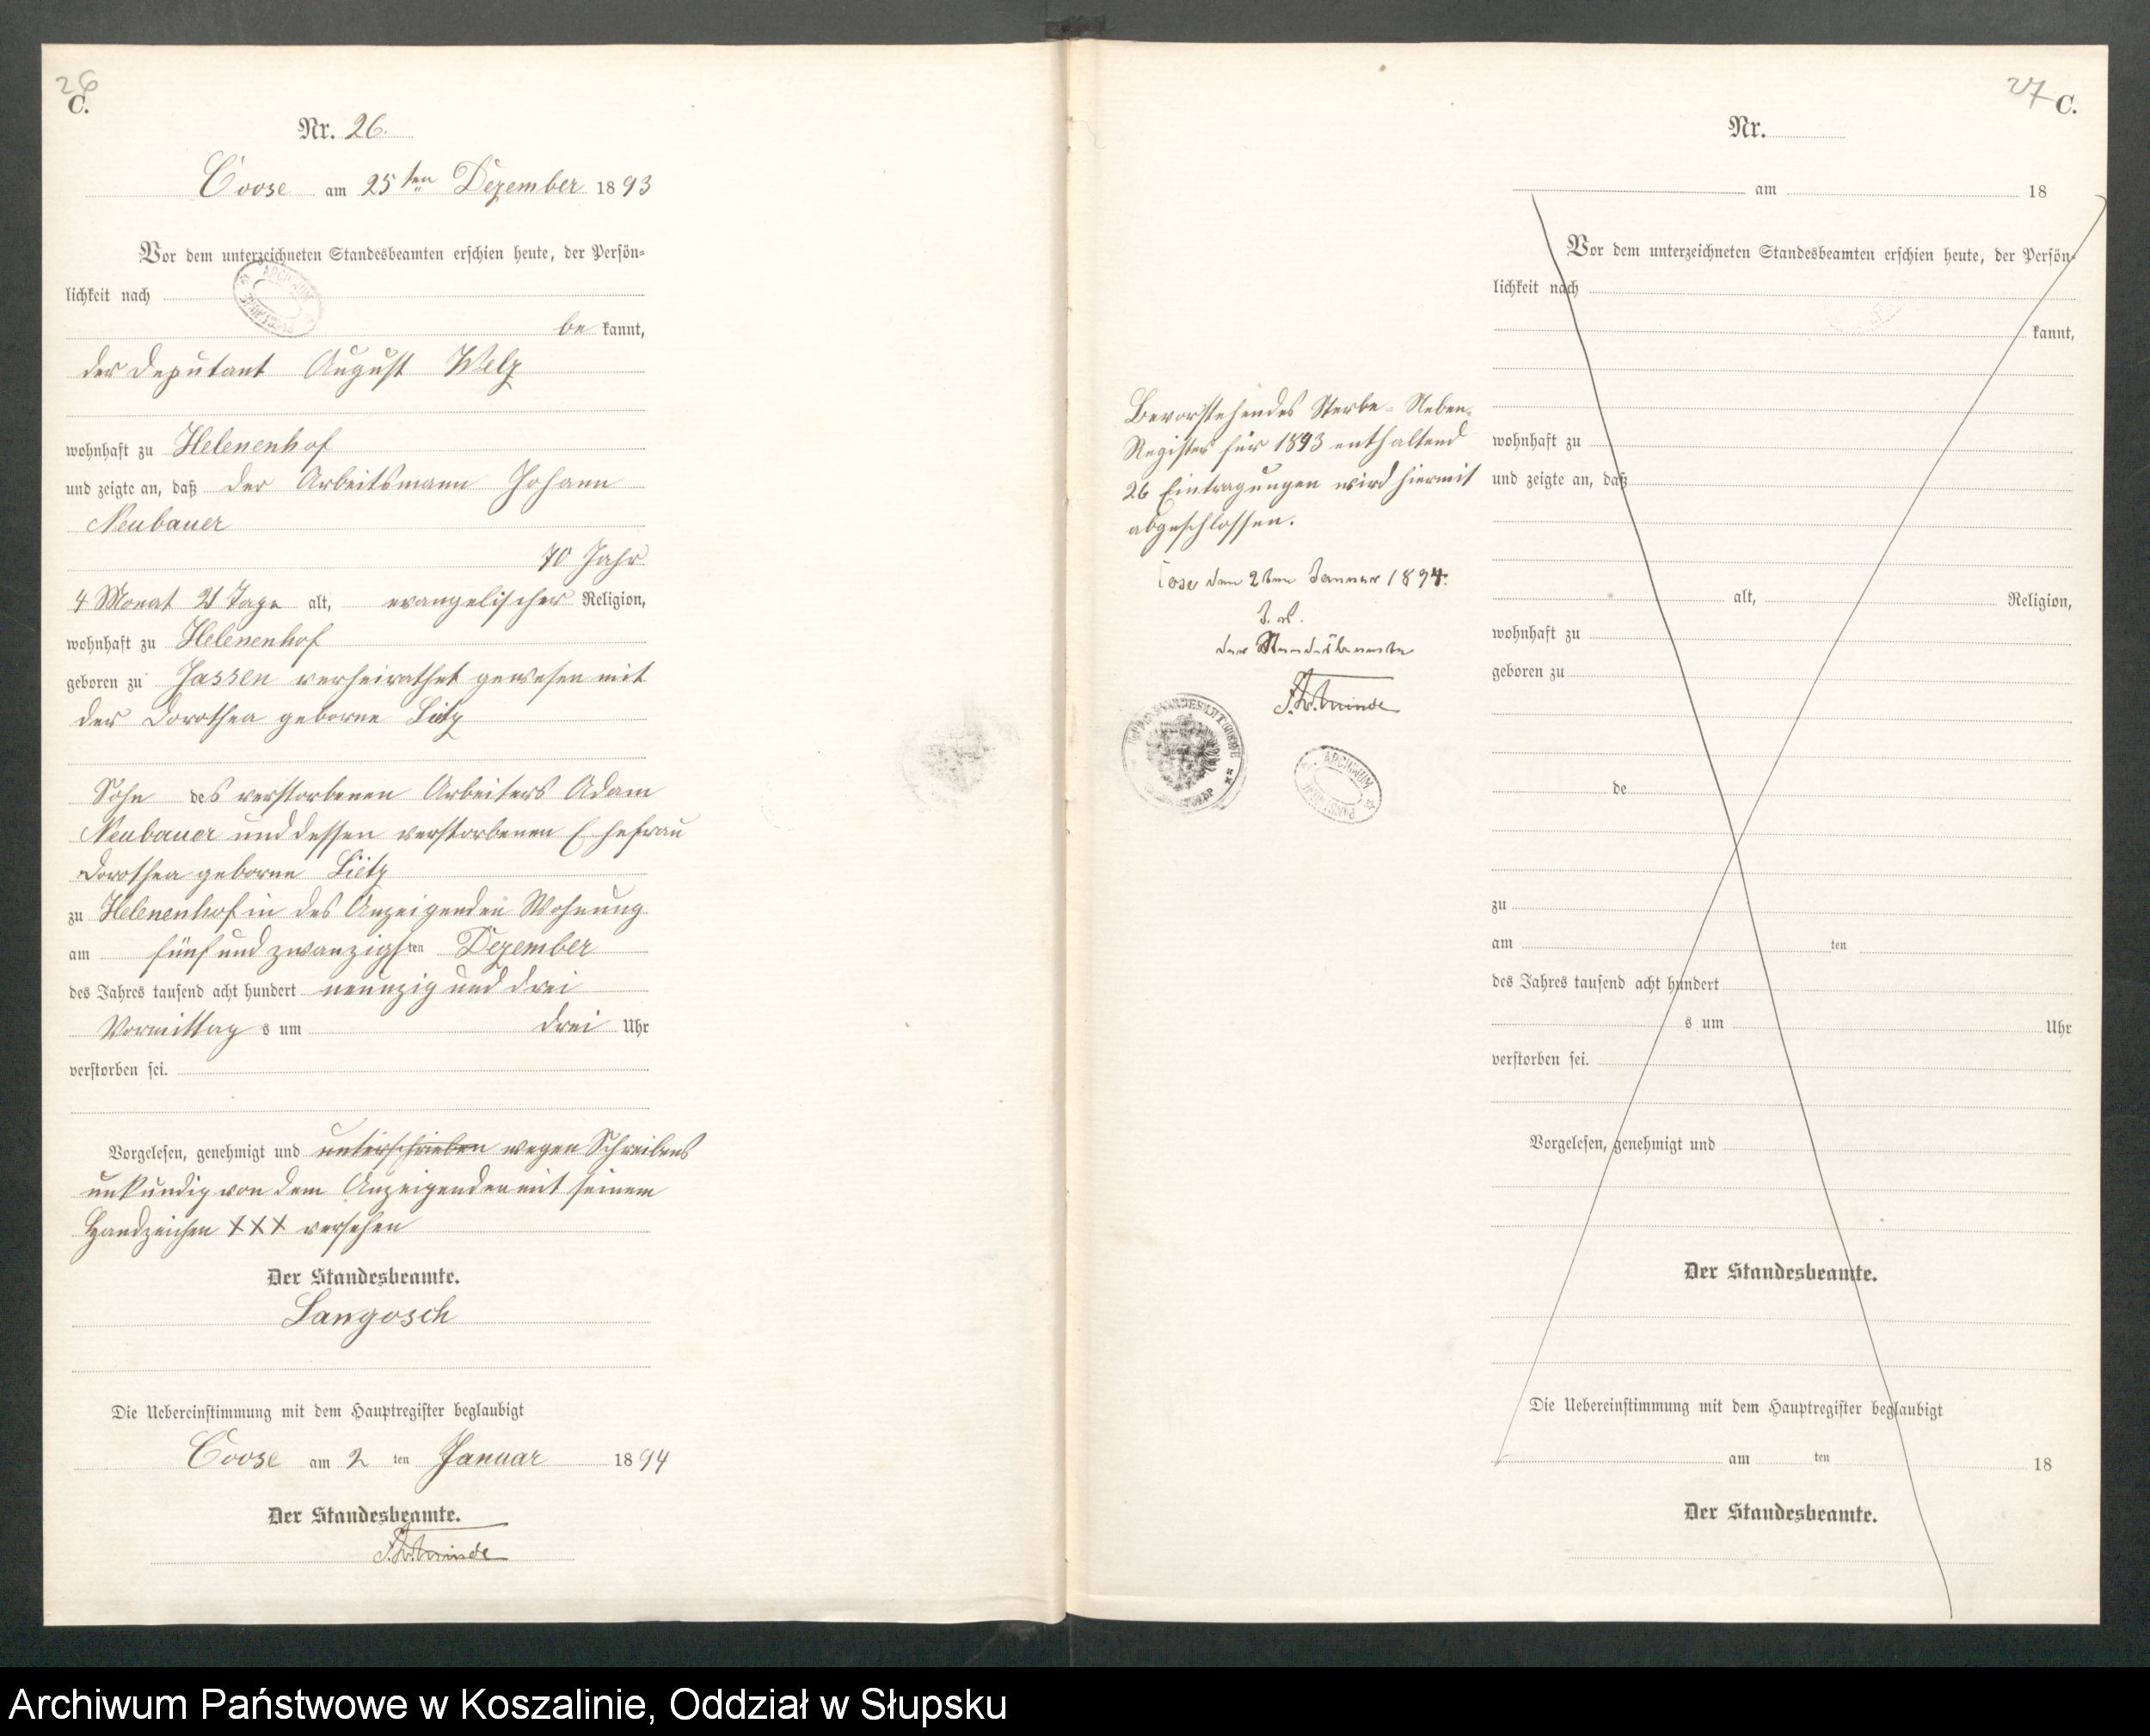 26
C.
Nr. 26.
Coose am 25ten Dezember 1893
Vor dem unterzeichneten Standesbeamten erschien heute, der Persön-
lichkeit nach
be kannt,
der Deputant August Welz
wohnhaft zu Helenenhof
und zeigte an, daß der Arbeitsmann Johann
Neubauer
70 Jahr
4 Monat 21 Tage alt, evangelischer Religion,
wohnhaft zu Helenenhof
geboren zu Jassen verheirathet gewesen mit
der Dorothea geborne Lietz
Sohn des verstorbenen Arbeiters Adam
Neubauer und dessen verstorbenen Ehefrau
Dorothea geborne Lietz
zu Helenenhof in des Anzeigenden Wohnung
am fünf und zwanzigsten Dezember
des Jahres tausend acht hundert neunzig und drei
Vormittag s um drei Uhr
verstorben sei.
Vorgelesen, genehmigt und unterschrieben wegen Schreibens
unkundig von dem Anzeigenden mit seinem
Handzeichen XXX versehen
Der Standesbeamte.
Langosch
Die Uebereinstimmung mit dem Hauptregister beglaubigt
Coose am 2 ten Januar 1894
Der Standesbeamte.
27
C.
Nr.
am 18
Vor dem unterzeichneten Standesbeamten erschien heute, der Persön-
lichkeit nach
kannt,
Bevorstehendes Sterbe-Neben-
Register für 1893 enthaltend
26 Eintragungen wird hiermit
abgeschlossen.
Cose den 2ten Januar 1894.
der Standesbeamte
ARCHIWUM
wohnhaft zu
und zeigte an, daß
alt, Religion,
wohnhaft zu
geboren zu
de
zu
am ten
des Jahres tausend acht hundert
s um Uhr
verstorben sei.
Vorgelesen, genehmigt und
Der Standesbeamte.
Die Uebereinstimmung mit dem Hauptregister beglaubigt
am ten 18
Der Standesbeamte.
Archiwum Państwowe w Koszalinie, Oddział w Słupsku